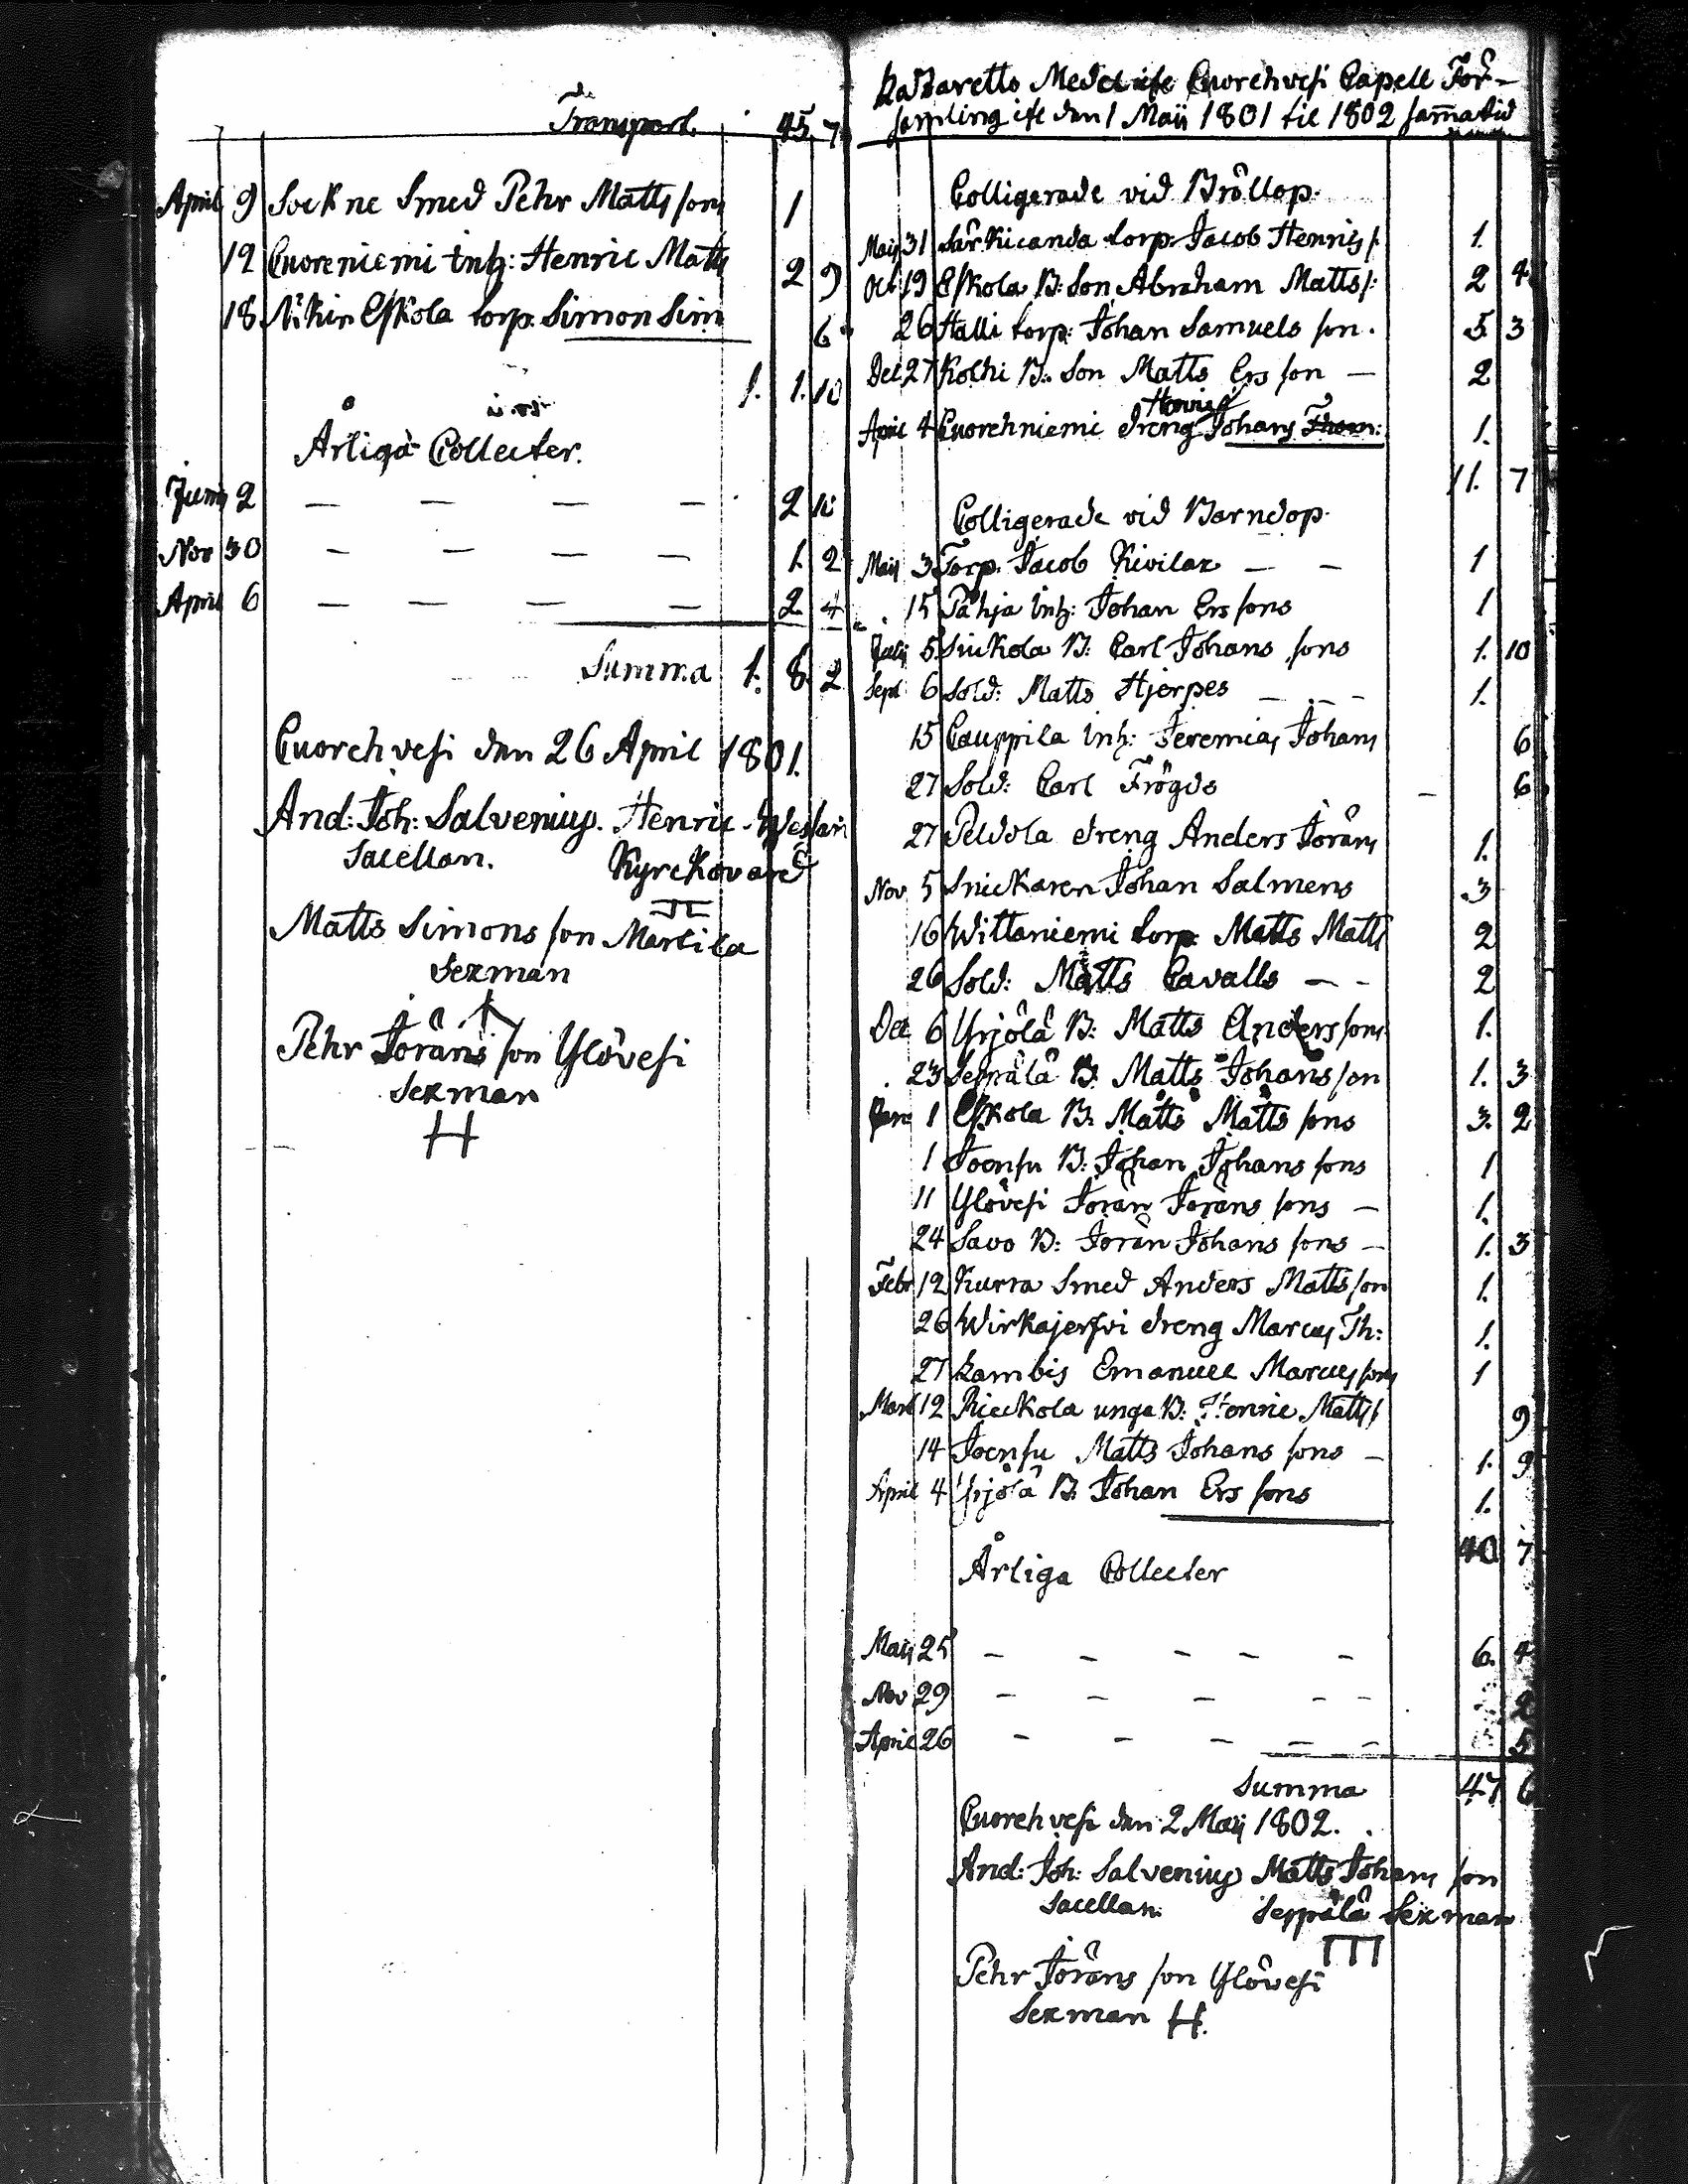 Transport. 45. 7
April 9 Sockne Smed Pehr Matts sons 1
12 Cuoreniemi inh: Henric Matts 2 9
18 Eskola torp: Simon Sim 6
1. 1. 10
Årliga Collecter.
Junii 2 — — — — 2
Nov 30 — — — — 1. 2
April 6 — — — — 2 4
Summa 1. 8. 2
Cuorehvesi den 26 April 1801.
And: Joh: Salvenius. Henric
Sacellan. Kyrckovärd
Matts Simons son Martila
Sexman
Pehr Jörans son Ylövesi
Sexman
H
Lazaretts Medel ifr Cuorehvesi Capell För-
samling ifr den 1 Maii 1801 til 1802 samma tid
Colligerade vid Bröllop.
Maij 31 Särkicanda torp: Jacob Henrics s. 1.
Oct 19 Eskola B: Son Abraham Matts s: 2 4
26 Halli torp: Johan Samuels son. 5 3
Dec 27 Kolhi B: Son Matts Ers son — 2
Henrics
April 4 Cuorehniemi dreng Johans Thom: 1.
11. 7
Colligerade vid Barndop.
Maij 3 Torp: Jacob Kivilax — — 1
15 Pähja inh: Johan Ers sons 1
Julij 5 Siukola B: Carl Johans sons 1. 10
Sept 6 Sold: Matts Hjerpes — — — 1.
15 Cauppila inh: Jeremias Johans 6
27 Sold: Carl Frögds — 6
27 Peldola dreng Anders Jörans 1.
Nov 5 Snickaren Johan Salmens 3
16 Wittaniemi torp: Matts Matts 2
26 Sold: Matts Cavalls — - 2
Dec 6 Yrjölä B: Matts Anders sons 1.
23 Seppälä B: Matts Johans son 1. 3
Jan 1 Eskola B: Matts Matts sons 3. 2
1 Joensu B: Johan Johans sons 1
11 Ylövesi Jöran Jörans sons — 1.
24 Savo B: Jöran Johans sons — 1. 3
Febr 12 Kurra Smed Anders Matts son 1.
26 Wirkajerfvi dreng Marcus Th: 1.
27 Lambis Emanuel Marcus sons 1
Mart 12 Rieckola unga B: Henric Matts s 9
14 Joensu Matts Johans sons — 1. 9
April 4 Yrjölä B: Johan Ers sons 1.
40 7
Årliga Collecter
Maij 25 — — — — — 6. 4
Nov 29 — — — - - 2
April 26 — — — — — 5
Summa 47 6
Cuorehvesi den 2 Maij 1802.
And: Joh: Salvenius Matts Johans son
Sacellan. Seppälä Sexman
Pehr Jörans son Ylövesi
Sexman H.